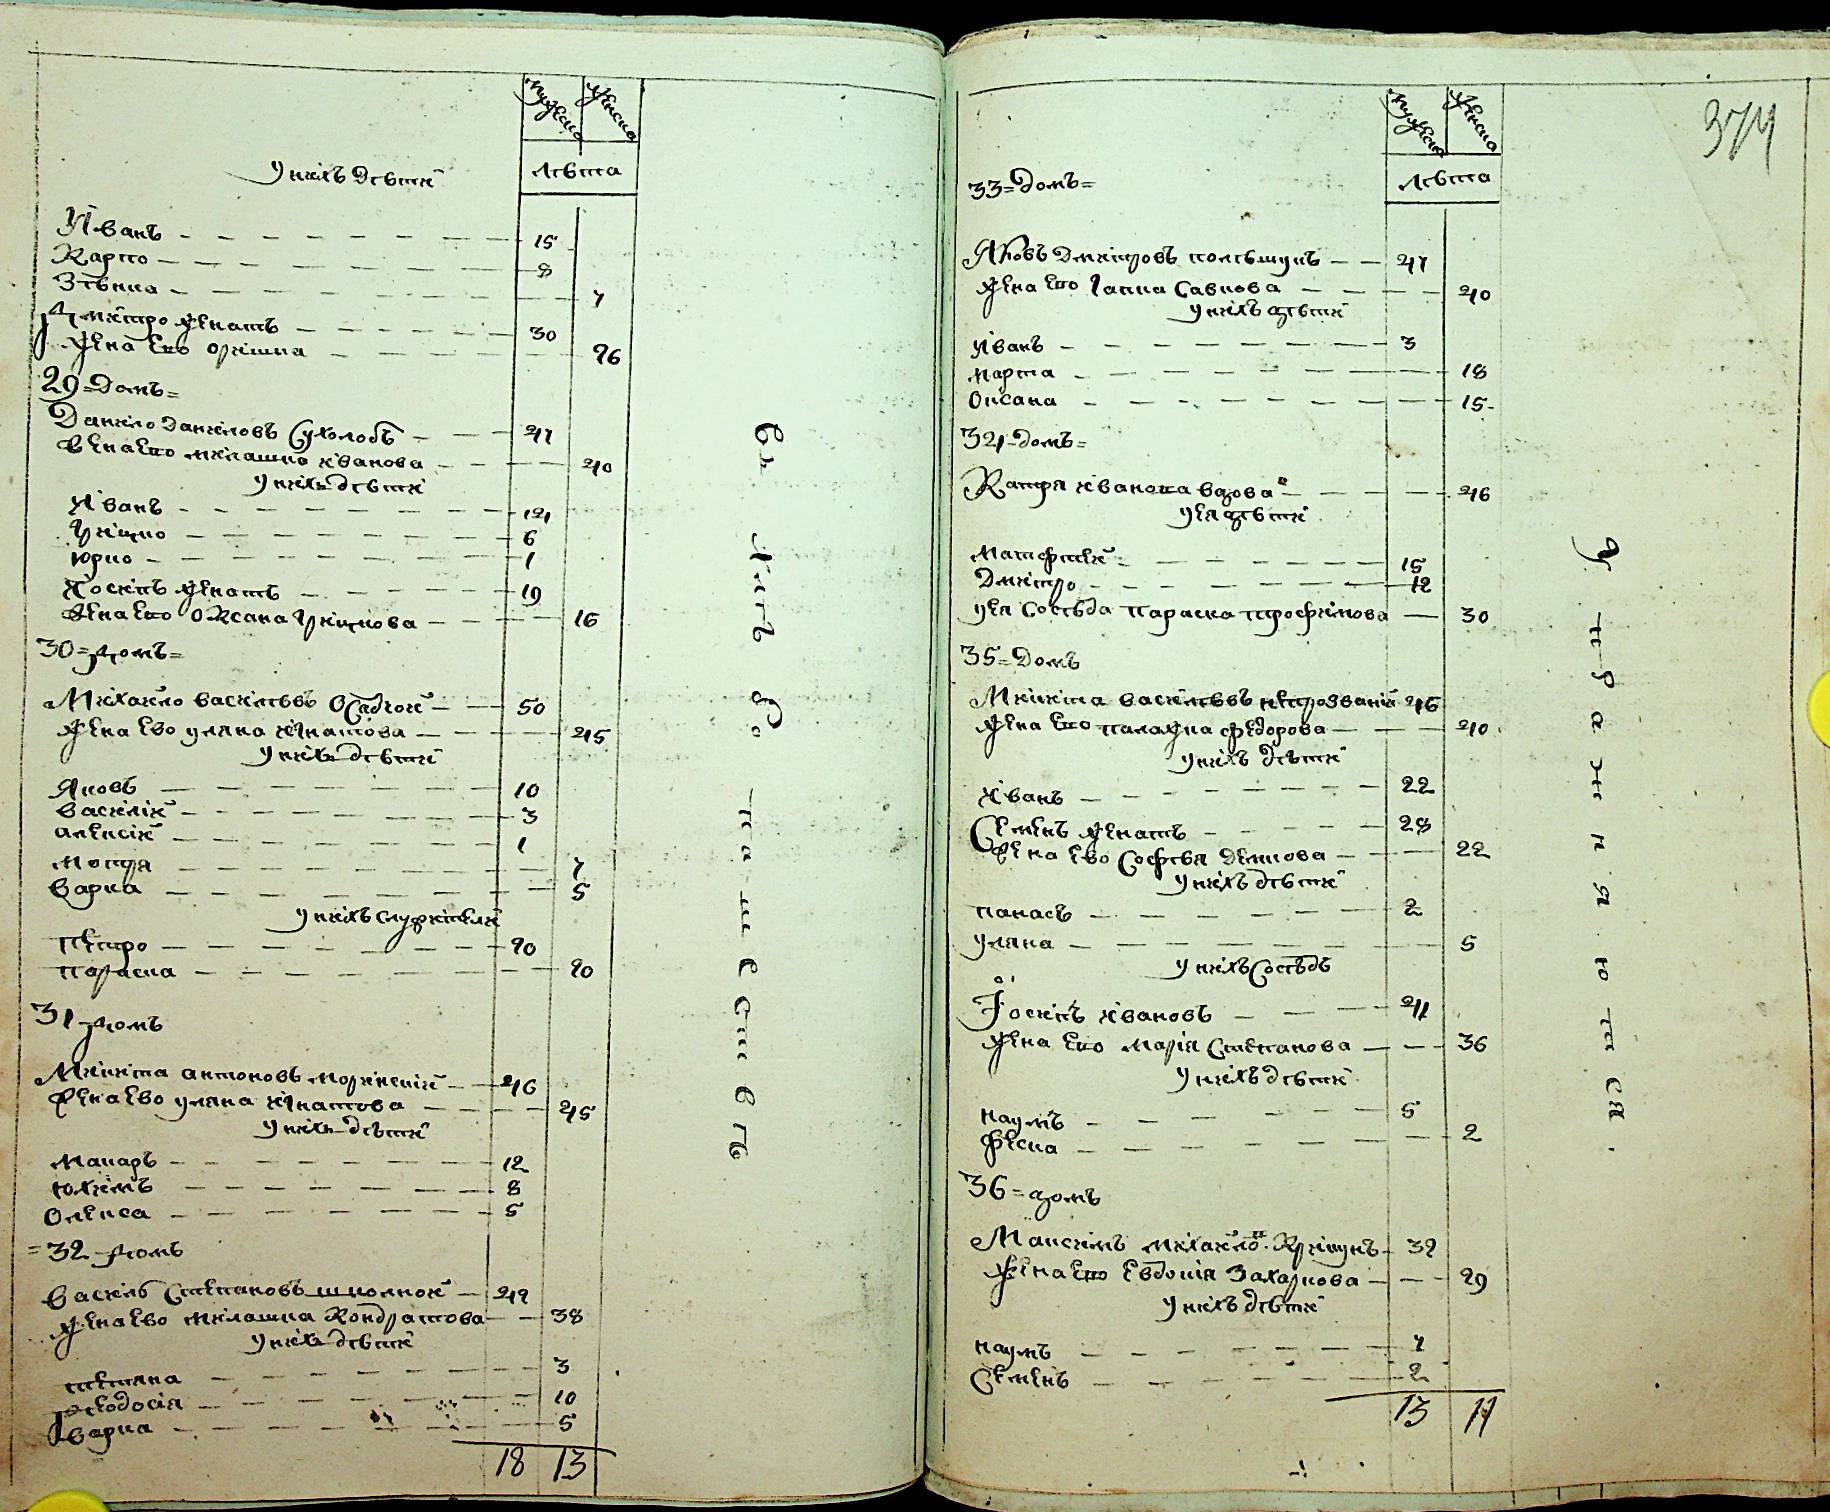 мужеска женска
лѣта
у нихъ дѣти
Иванъ 15
Карпо 8
Зѣнка 7
Дмитро женатъ 30
Жена ево Оришка 26
29=домъ=
Данило Даниловъ Сухолобъ 41
Жена ево Мелашка Иванова 40
у нихъ дѣти
Иванъ 14
Грицко 6
Юрко 1
Иосипъ женатъ 19
Жена ево Оксана Грицкова 16
30=домъ=
Михайло Васильевъ Осадчой 50
Жена ево Уляна Игнатова 45
у нихъ дѣти
Яковъ 10
Василій 3
Алексій 1
Мотря 7
Варка 5
у нихъ служители
Петро 20
Параска 20
31 домъ
Микита Антоновъ 46
Жена ево Уляна Игнатова 45
у нихъ дѣти
Макаръ 12
Юхимъ 8
Олекса 5
=32 домъ
Василь Степановъ Школной 42
Жена ево Мелашка Кондратова 38
у нихъ дѣти
Тетяна 3
Феодосія 10
Варка 5
18 13
въ Кіево
мѣстѣ
374
мужеска женска
лѣта
33=домъ=
Яковъ Дмитровъ 41
Жена ево Гапка Савкова 40
у нихъ дѣти
Иванъ 3
Марта 18
Оксана 15
34=домъ=
Катря Иванова вдова 46
у ея дѣти
Матфій 15
Дмитро 12
у ея сосѣда Параска Трофимова 30
35=домъ
Микита Васильевъ 46
Жена ево Палажка Федорова 40
у нихъ дѣти
Иванъ 22
Семенъ женатъ 28
Жена ево Софія Демкова 22
у нихъ дѣти
Панасъ 2
Уляна 5
у нихъ сосѣдъ
Іосипъ Ивановъ 41
Жена ево Марія Степанова 36
у нихъ дѣти
Наумъ 5
Феска 2
36=домъ
Максимъ Михайловъ 32
Жена ево Евдокія Захаркова 29
у нихъ дѣти
Наумъ 7
Семенъ 2
13 11
упражняются.